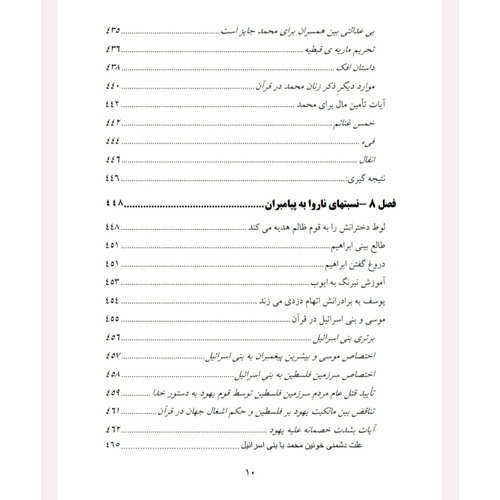 بی عدالتی بین همسران برای محمد جایز است ........ ۴۳۵
تحریم ماریه ی قبطیه ........ ۴۳۶
داستان افک ........ ۴۳۸
موارد دیگر ذکر زنان محمد در قرآن ........ ۴۴۰
آیات تأمین مال برای محمد ........ ۴۴۲
خمس غنائم ........ ۴۴۲
فیء ........ ۴۴۴
انفال ........ ۴۴۶
نتیجه گیری: ........ ۴۴۶
فصل ۸ –نسبتهای ناروا به پیامبران ........ ۴۴۸
لوط دخترانش را به قوم ظالم هدیه می کند ........ ۴۴۸
طالع بینی ابراهیم ........ ۴۵۱
دروغ گفتن ابراهیم ........ ۴۵۱
آموزش نیرنگ به ایوب ........ ۴۵۳
یوسف به برادرانش اتهام دزدی می زند ........ ۴۵۴
موسی و بنی اسرائیل در قرآن ........ ۴۵۵
برتری بنی اسرائیل ........ ۴۵۶
اختصاص موسی و بیشرین پیغمبران به بنی اسرائیل ........ ۴۵۷
اختصاص سرزمین فلسطین به بنی اسرائیل ........ ۴۵۸
تأیید قتل عام مردم سرزمین فلسطین توسط قوم یهود به دستور خدا ........ ۴۵۹
تناقض بین مالکیت یهود بر فلسطین و حکم اشغال جهان در قرآن ........ ۴۶۱
آیات بشدت خصمانه علیه یهود ........ ۴۶۲
علت دشمنی خونین محمد با بنی اسرائیل ........ ۴۶۵
۱۰